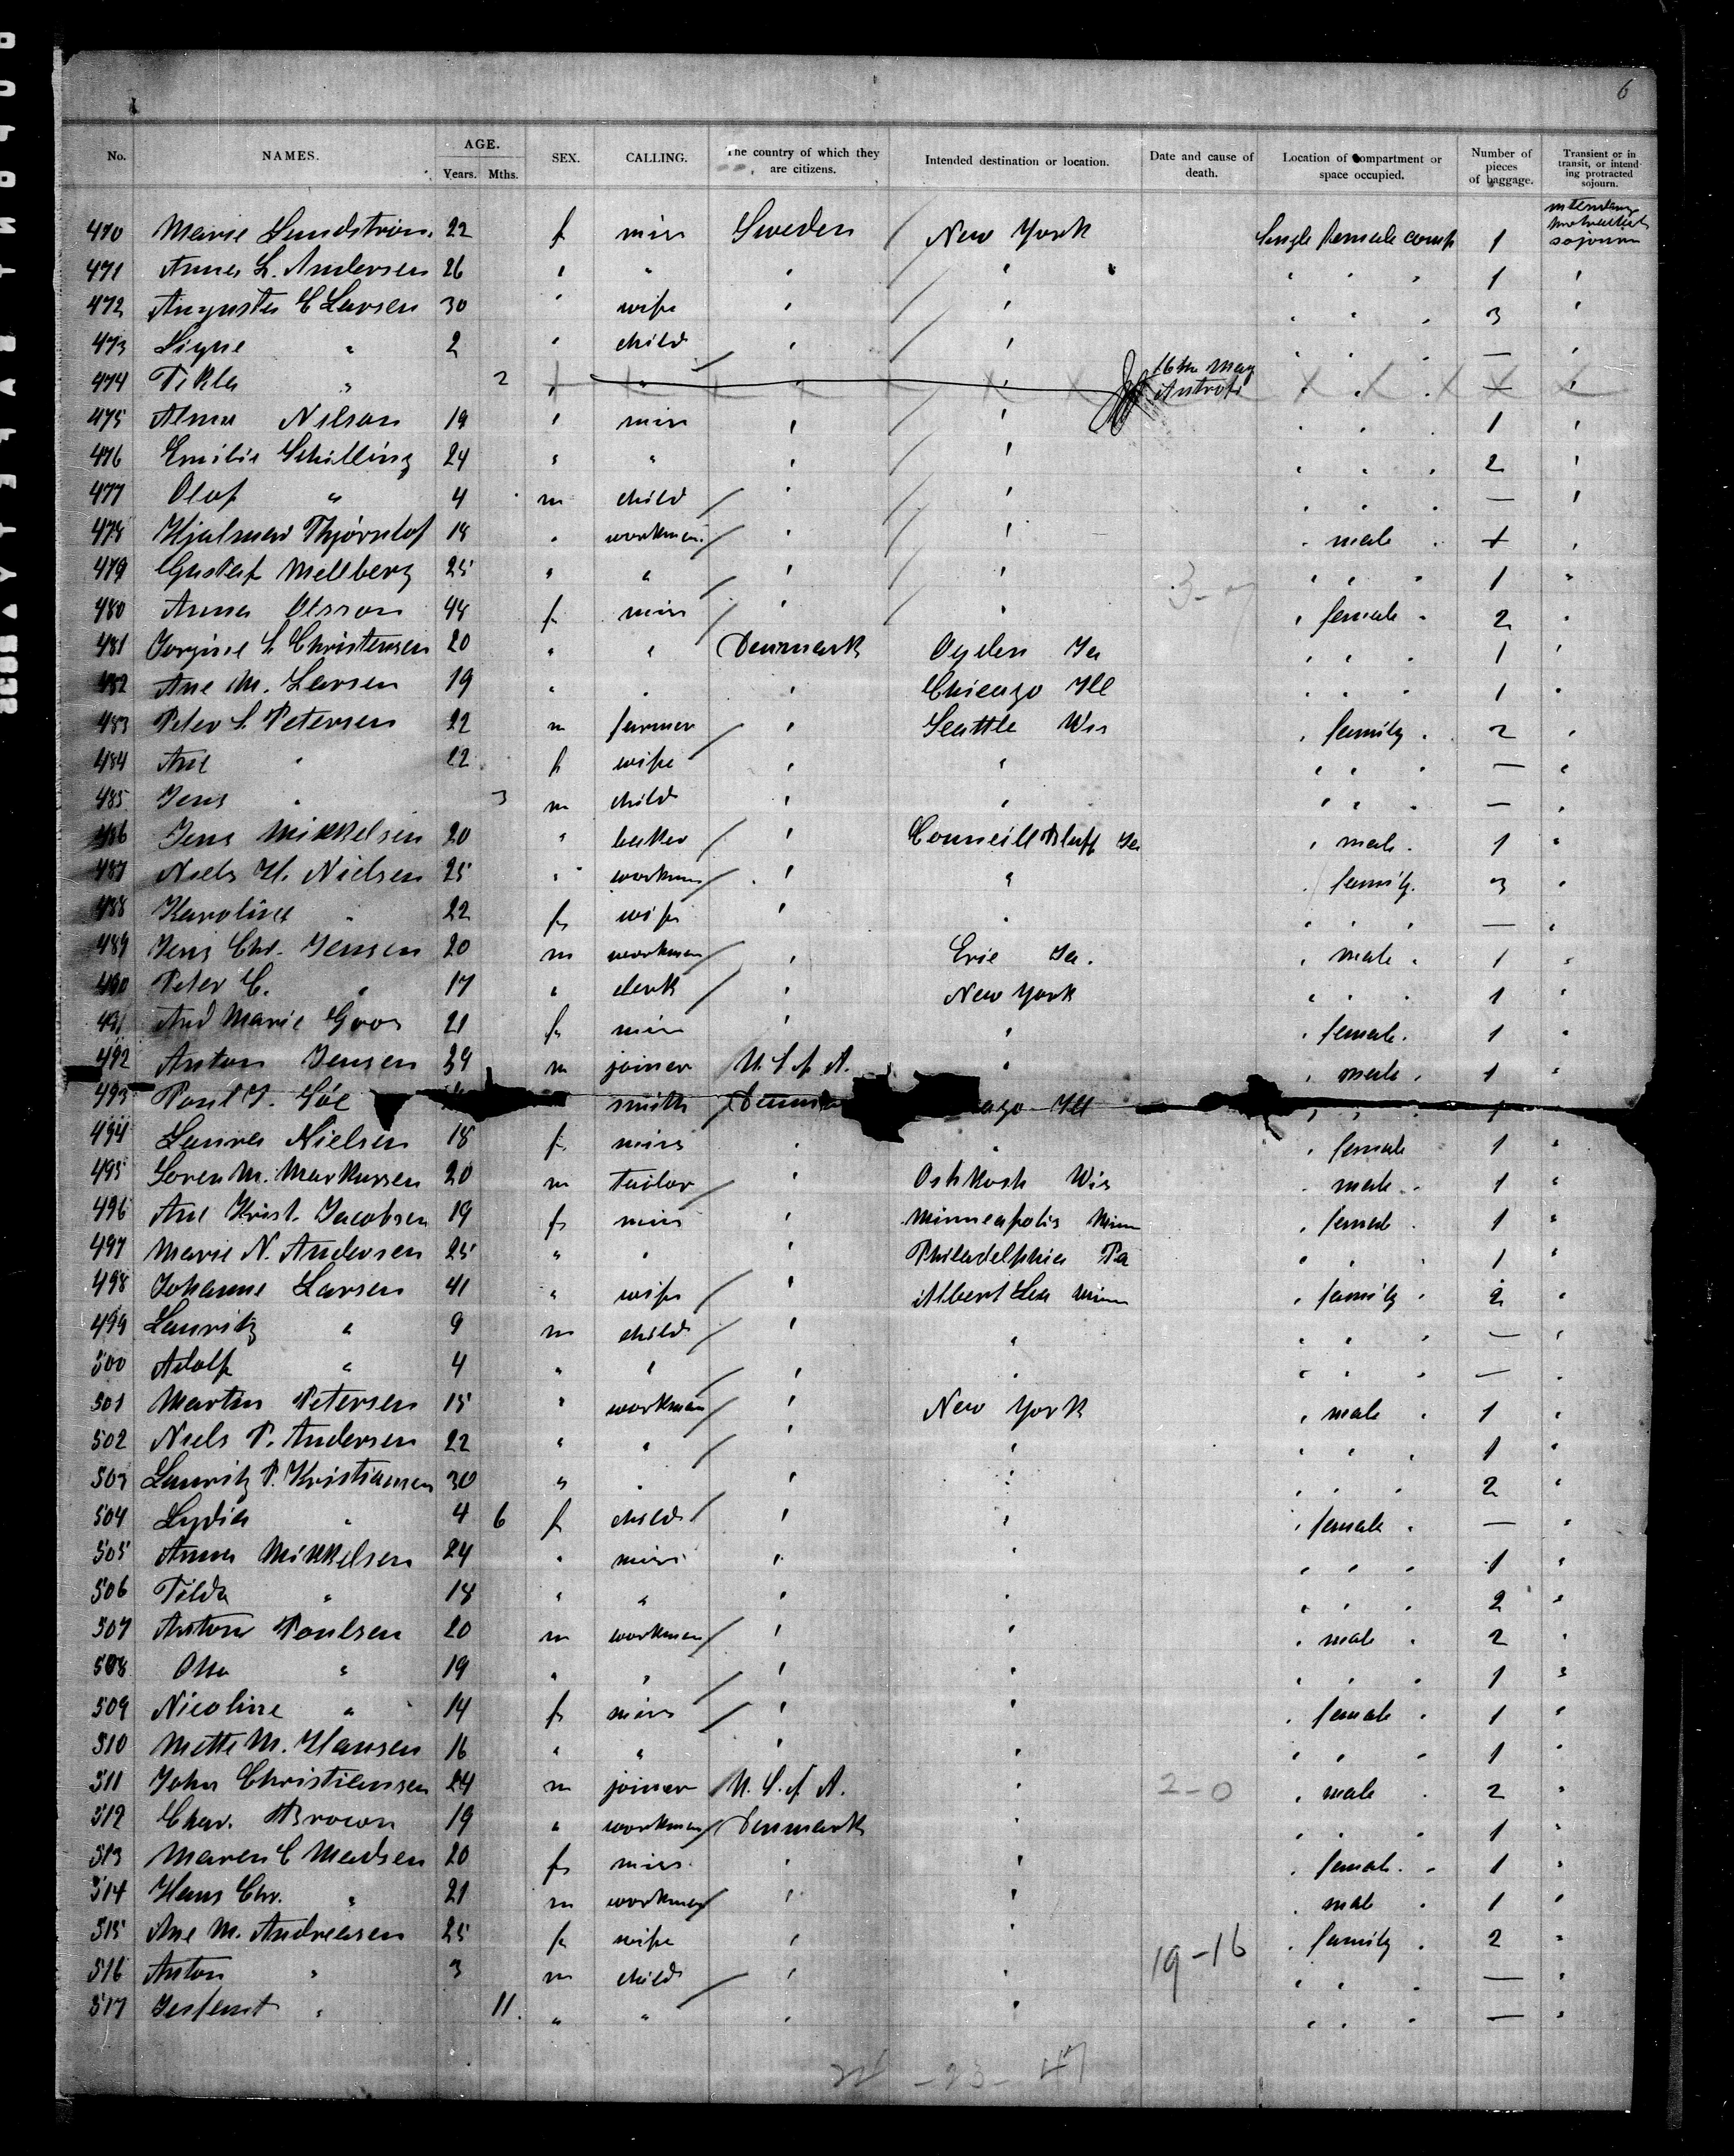 6
No. NAMES. AGE. Years. Mths. SEX. CALLING. The country of which they are citizens. Intended destination or location. Date and cause of death. Location of compartment or space occupied. Number of pieces of baggage. Transient or in transit, or intending protracted sojourn.
470 Marie Lundström 22 f miss Sweden / New York Single female comp 1 intending protracted sojourn
471 Anna L. Andersen 26 " " " / " " " " 1 "
472 Augusta C Larsen 30 " wife " / " " " " 3 "
473 Signe " 2 " child / " / " " " " — "
474 Tekla " 2 " " " " 16th May " " " — "
475 Alma Nilson 19 " miss " / " " " " 1 "
476 Emilie Schilling 24 " " " / " " " " 2 "
477 Olof " 4 m child / " / " " " " — "
478 Hjalmar 18 " workman / " / " " male " "
479 Gustaf Mellberg 25 " " / " / " 3- " " " 1 "
480 Anna Olsson 48 f miss / " / " " female " 2 "
481 Jorgine L Christensen 20 " " Denmark Ogden Ia " " " 1 "
482 Ane M. Larsen 19 " " " Chicago Ill " " " 1 "
483 Peter L Petersen 22 m farmer / " Seattle Wis " family " 2 "
484 Ane " 22 f wife " " " " " — "
485 Jens " 3 m child " " " " " — "
486 Jens Mikkelsen 20 " baker / " Councill Bluff Ia " male " 1 "
487 Niels H. Nielsen 25 " workman / " " " family 3 "
488 Karoline " 22 f wife " " " " " — "
489 Jens Chr. Jensen 20 m workman / " Erie Ia. " male " 1 "
490 Peter C. " 17 " clerk / " New York " " " 1 "
491 Marie 21 f miss " " " female " 1 "
492 Anton Jensen 39 m joiner U. S. of A. " " male " 1 "
493 Poul J. smith / ago Ill " " 1
494 Laura Nielsen 18 f miss " " " female 1 "
495 Soren M. Markussen 20 m tailor / " Oshkosh Wis " male " 1 "
496 Ane Krist. Jacobsen 19 f miss " Minneapolis Minn " female " 1 "
497 Marie N. Andersen 25 " " " Philadelphia Pa " " " 1 "
498 Johanne Larsen 41 " wife / " Albert Lea Minn " family " 2 "
499 Lauritz " 9 m child / " " " " " — "
500 Adolf " 4 " " / " " " " " — "
501 Martin Petersen 15 " workman / " New York " male " 1 "
502 Niels P. Andersen 22 " " / " " " " " 1 "
503 Lauritz P. Kristiansen 30 " " " " " " " 2 "
504 Lydia " 4 6 f child / " " " female " — "
505 Anna Mikkelsen 24 " miss " " " " " 1 "
506 Tilda " 18 " " " " " " " 2 "
507 Anton Poulsen 20 m workman / " " " male " 2 "
508 Otto " 19 " " / " " " " " 1 "
509 Nicoline " 14 f miss / " " " female " 1 "
510 Mette M. Hansen 16 " " " " " " " 1 "
511 John Christiansen 24 m joiner / U. S. of A. " 2-0 " male " 2 "
512 Char. Brown 19 " workman / Denmark " " " " 1 "
513 Maren C Madsen 20 f miss " " " female " 1 "
514 Hans Chr. " 21 m workman / " " " male " 1 "
515 Ane M. Andreasen 25 f wife " " " family " 2 "
516 Anton " 3 m child / " " 19-16 " " " — "
517 " 11 " " " " " " " — "
- 23 - 47